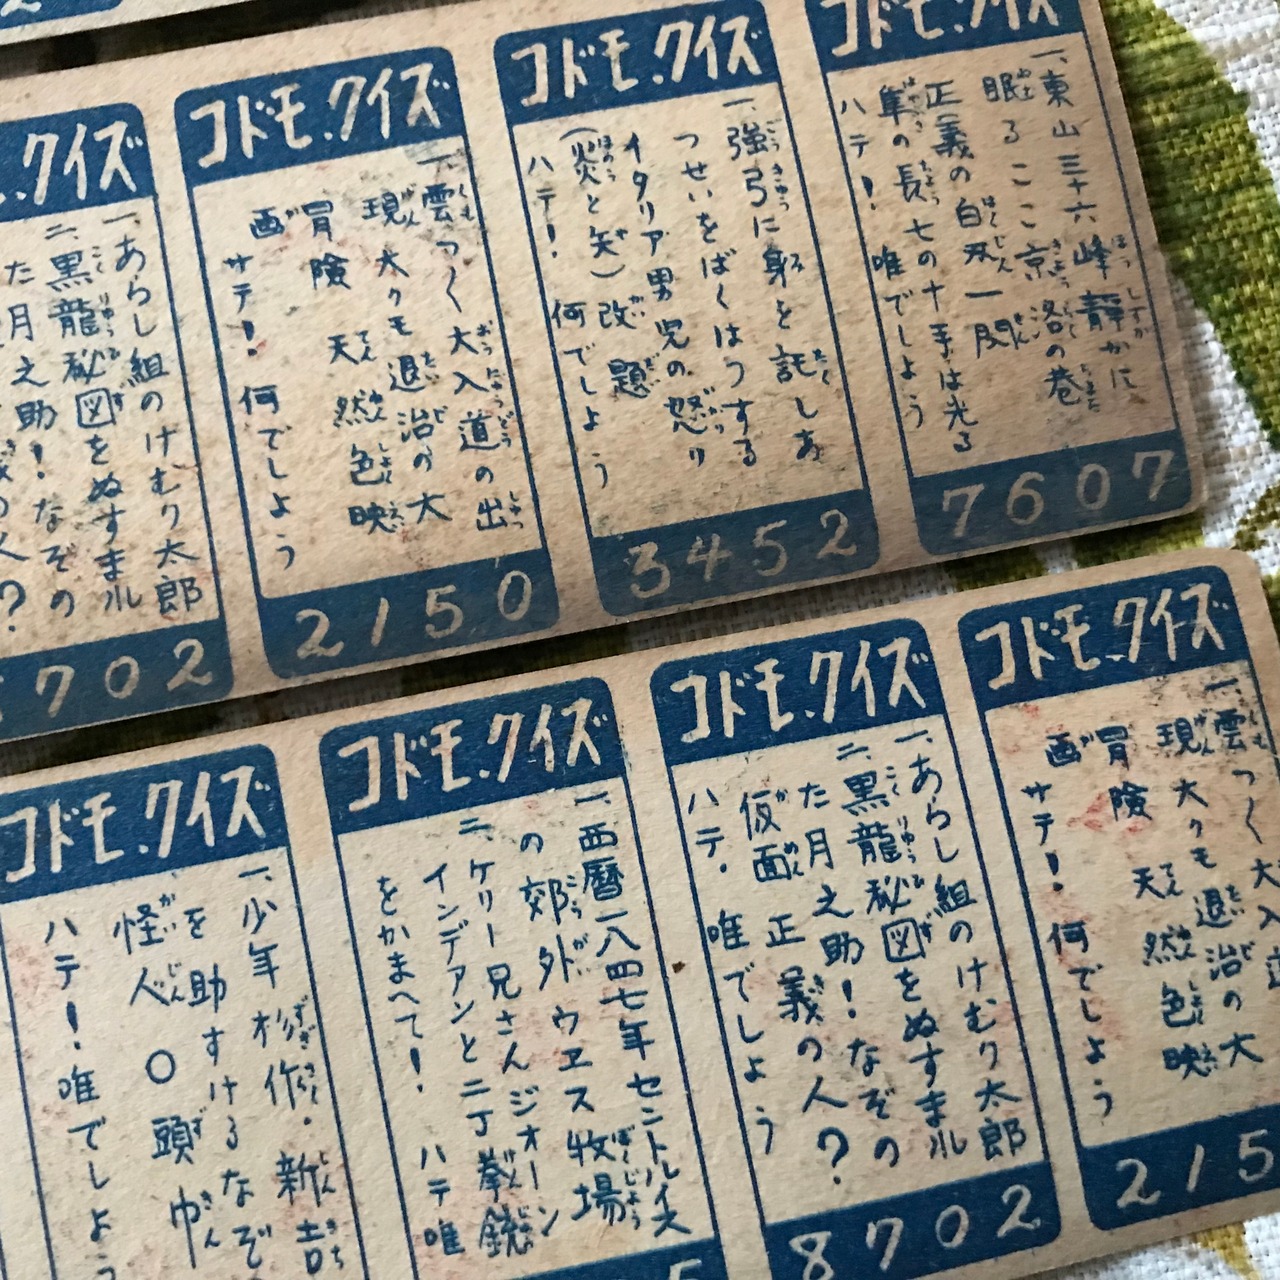 コドモ.クイズ
一、東山三十六峰静かに
眠るここ京洛の巷
正義の白刃一閃
隼の長七の十手は光る
ハテ!唯でしよう
7607
コドモ.クイズ
一、強弓に身を託しあ
つせいをばくはつする
イタリア男児の怒り
(炎と矢)改題
ハテ!何でしよう
3452
コドモ.クイズ
一、雲つく大入道の出
現大クモ退治の大
冒険 天然色映
画
サテ!何でしよう
2150
クイズ
一、あらし組のけむり太郎
二、黒龍秘図をぬすまル
た月之助!なぞの
の人?
702
コドモ.クイズ
一、雲つく大入道
現大クモ退治の大
冒険 天然色映
画
サテ!何でしよう
215
コドモ.クイズ
一、あらし組のけむり太郎
二、黒龍秘図をぬすまル
た月之助!なぞの
仮面正義の人?
ハテ.唯でしよう
8702
コドモ.クイズ
一、西暦一八四七年セントルイス
の郊外ウエス牧場
二、ケリー兄さんジオーン
インデアンと二丁拳銃
をかまへて! ハテ唯
5
コドモ.クイズ
一、少年杉作.新吉
を助すけるなぞの
怪人〇頭巾
ハテ!唯でしよう